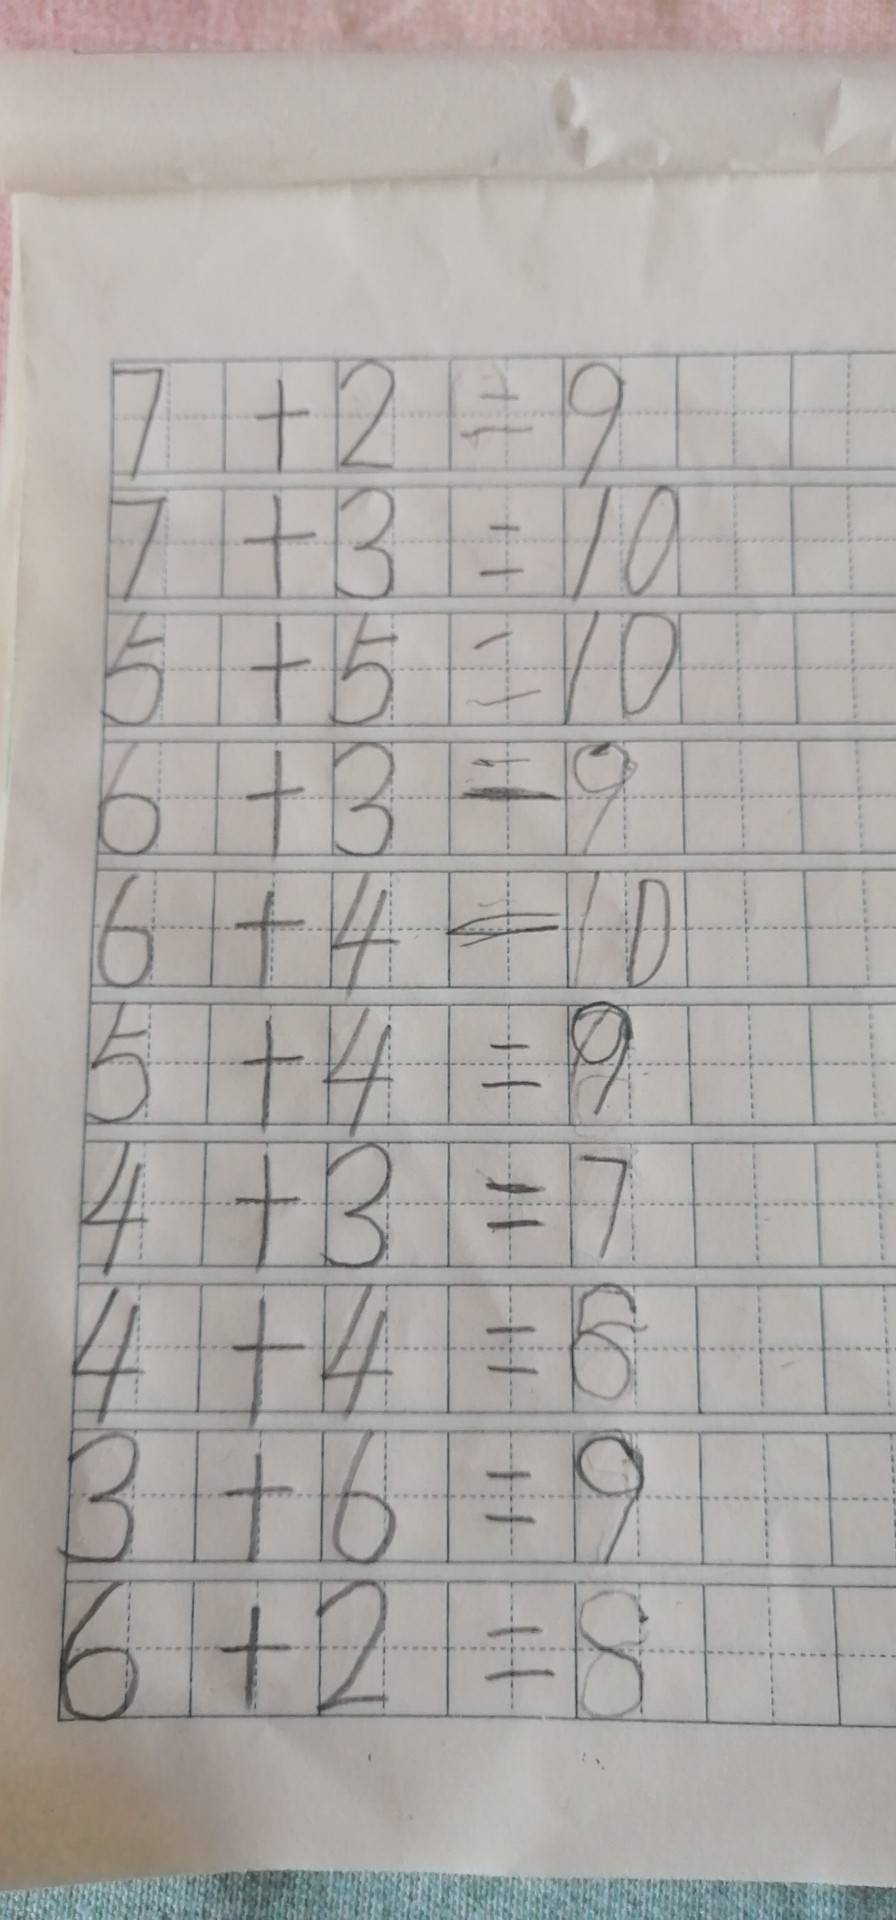 7+2=9
7+3=10
5+5=10
6+3=9
6+4=10
5+4=9
4+3=7
4+4=8
3+6=9
6+2=8